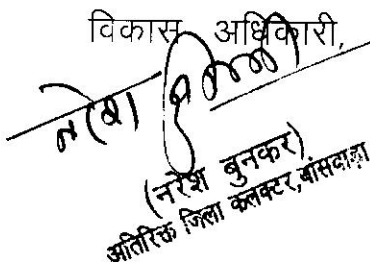 विकास अधिकारी,
(नरेश बुनकर)
अतिरिक्त जिला कलक्टर, बांसवाड़ा